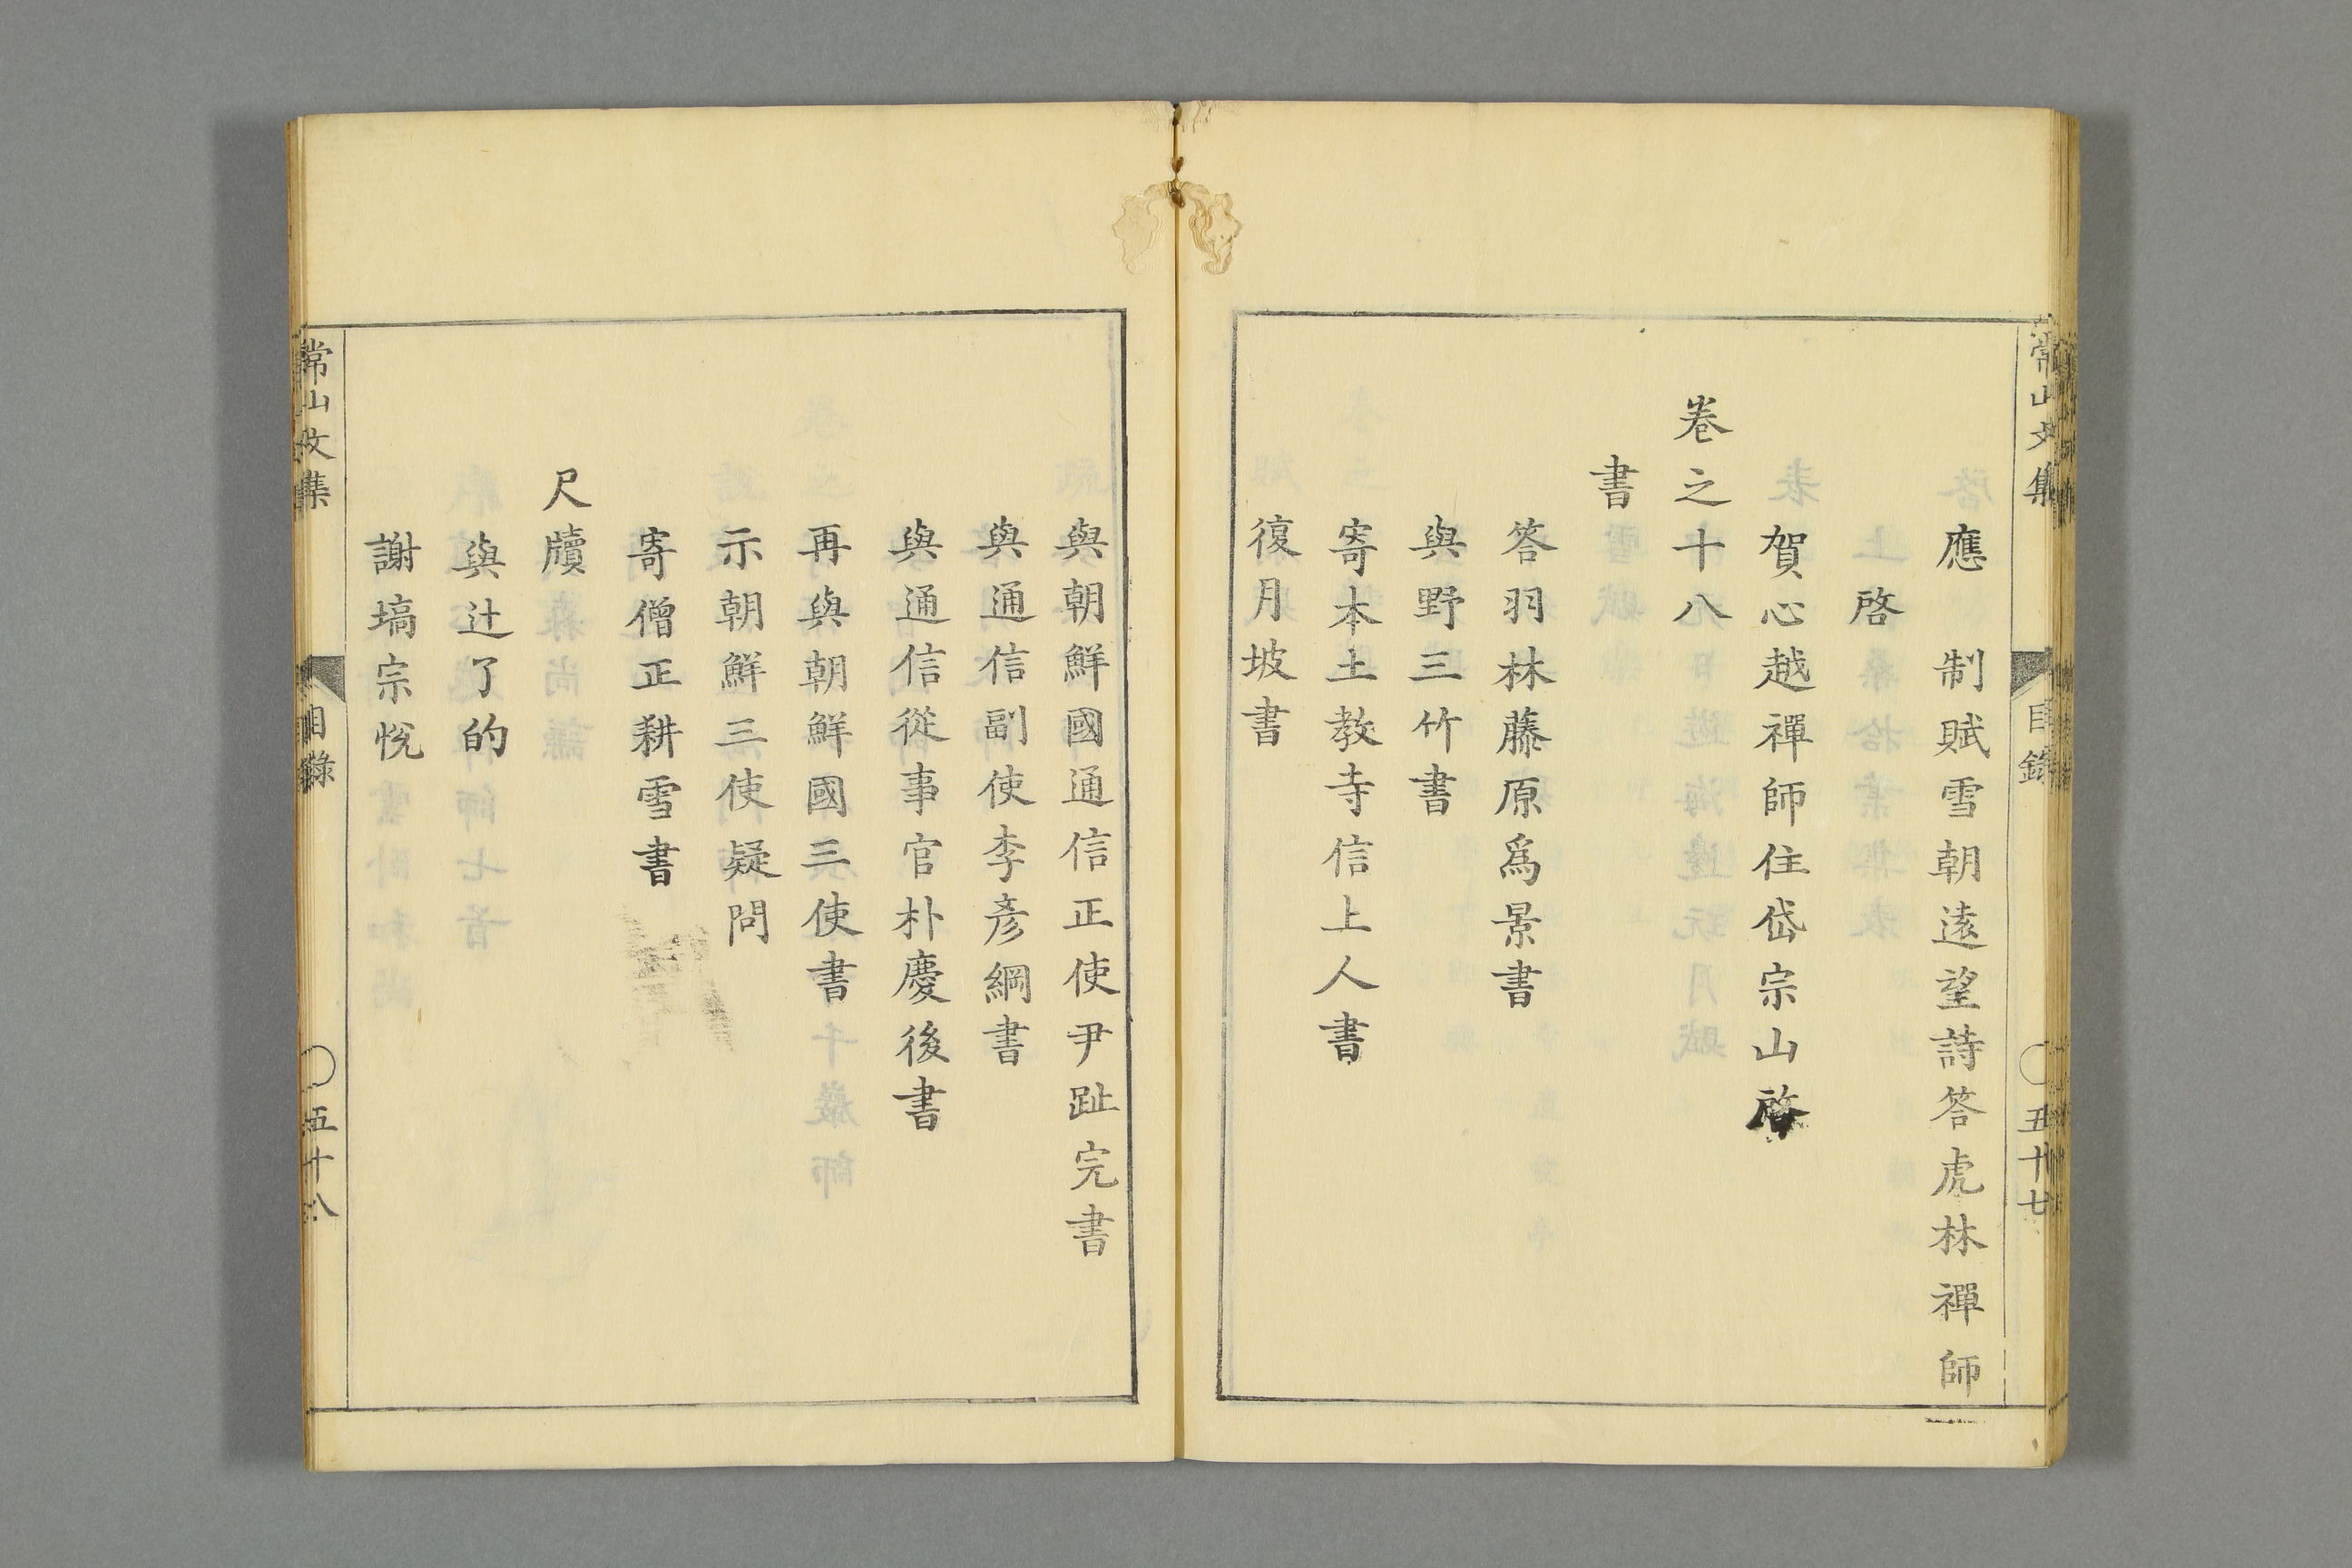 常山文集
目錄
○五十七
應　制賦雪朝遠望詩答虎林禪師
啓
賀心越禪師住岱宗山啓
卷之十八
書
答羽林藤原爲景書
與野三竹書
寄本土教寺信上人書
復月坡書
與朝鮮國通信正使尹趾完書
與通信副使李彥綱書
與通信從事官朴慶後書
再與朝鮮國三使書
示朝鮮三使疑問
寄僧正耕雪書
尺牘
與辻了的
謝塙宗悅
常山文集
目錄
○五十八